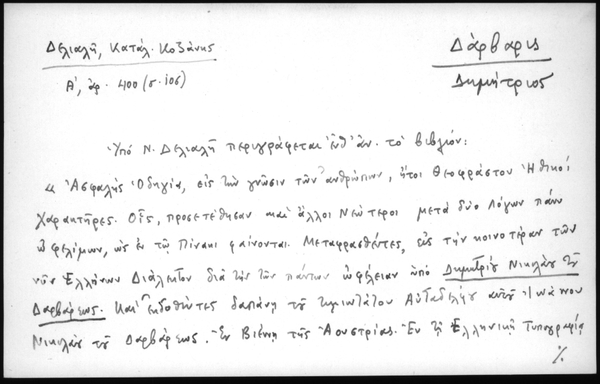 Δελιαλῆ, Κατάλ. Κοζάνης
Δάρβαρις
Δημήτριος
Α', ἀρ. 400 (σ. 106)
Ὑπό Ν. Δελιαλῆ περιγράφεται ἐνθ' ἀν. τό βιβλίον:
« Ἀσφαλής Ὁδηγία, εἰς τήν γνῶσιν τῶν ἀνθρώπων, ἤτοι Θεοφράστου Ἠθικοί
χαρακτῆρες. Οἷς, προσετέθησαν καί ἄλλοι Νεώτεροι μετά δύο Λόγων πάνυ
ὠφελίμων, ὡς ἐν τῷ Πίνακι φαίνονται. Μεταφρασθέντες, εἰς τήν κοινοτέραν τῶν
νῦν Ἑλλήνων Διάλεκτον διά τήν τῶν πάντων ὠφέλειαν ὑπό Δημητρίου Νικολάου τοῦ
Δαρβάρεως. Καί ἐκδοθέντες δαπάνῃ τοῦ τιμιωτάτου Αὐταδέλφου αὐτοῦ Ἰωάννου
Νικολάου τοῦ Δαρβάρεως. Ἐν Βιέννῃ τῆς Ἀουστρίας. Ἐν τῇ Ἑλληνικῇ Τυπογραφίᾳ
%